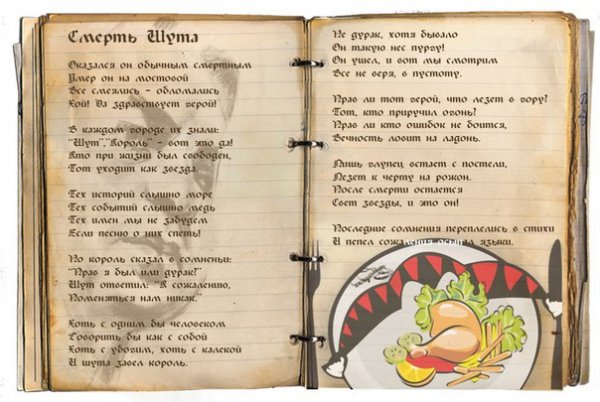 Смерть Шута
Оказался он обычным смертным
Умер он на мостовой
Все смеялись - обломались
Хой! Да здравствует герой!
В каждом городе их знали:
"Шут","Король" - вот это да!
Кто при жизни был свободен,
Тот уходит как звезда.
Тех историй слышно море
Тех событий слышно медь
Тех имен мы не забудем
Если песню о них спеть!
Но король сказал в сомненьи:
"Прав я был или дурак?"
Шут ответил: "К сожалению,
Поменяться нам никак."
Хоть с одним бы человеком
Говорить бы как с собой
Хоть с убогим, хоть с калекой
И шута завел король.
Не дурак, хотя бывало
Он такую нес пургу!
Он ушел, и вот мы смотрим
Все не веря, в пустоту.
Прав ли тот герой, что лезет в гору?
Тот, кто приручил огонь?
Прав ли кто ошибок не боится,
Вечность ловит на ладонь.
Лишь глупец встает с постели,
Лезет к черту на рожон.
После смерти остается
Свет звезды, и это он!
Последние сомнения переплелись в стихи
И пепел сожаления осыпал языки.